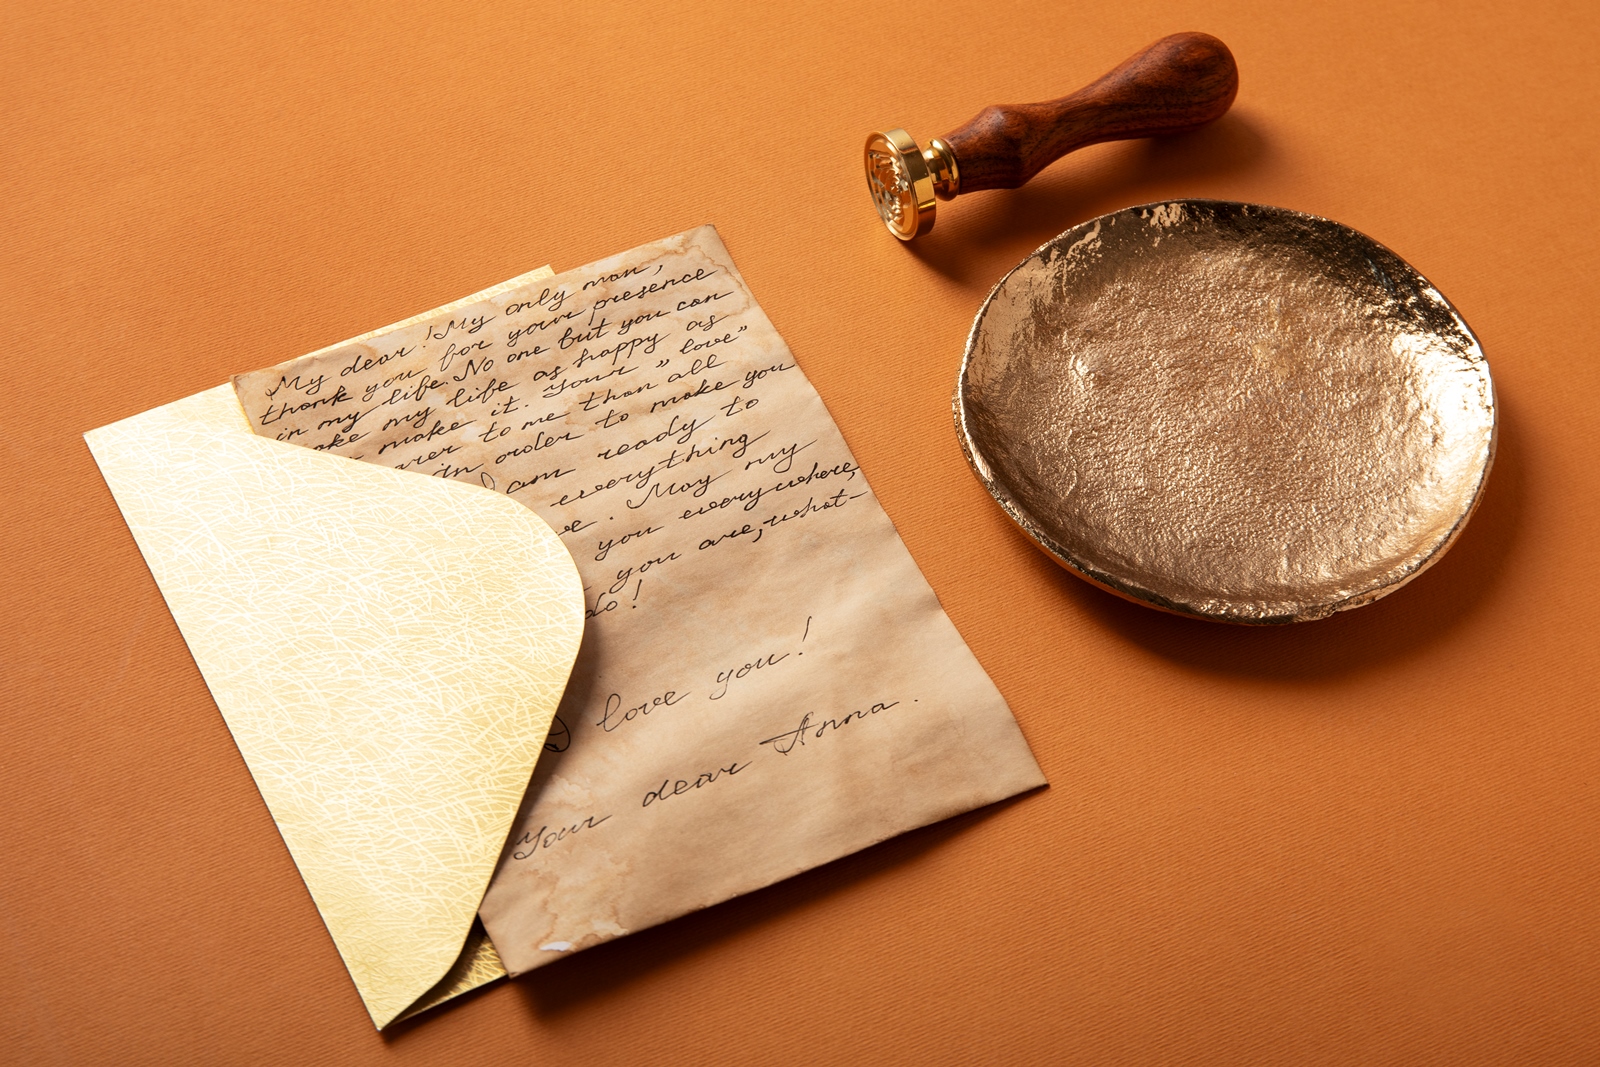 My dear! My only man,
thank you for your presence
in my life. No one but you can
ake my life as happy as
make it. Your „love”
arer to me than all
in order to make you
I am ready to
everything
ve. May my
you everywhere,
you are, what-
do!
I love you!
Your dear Anna.